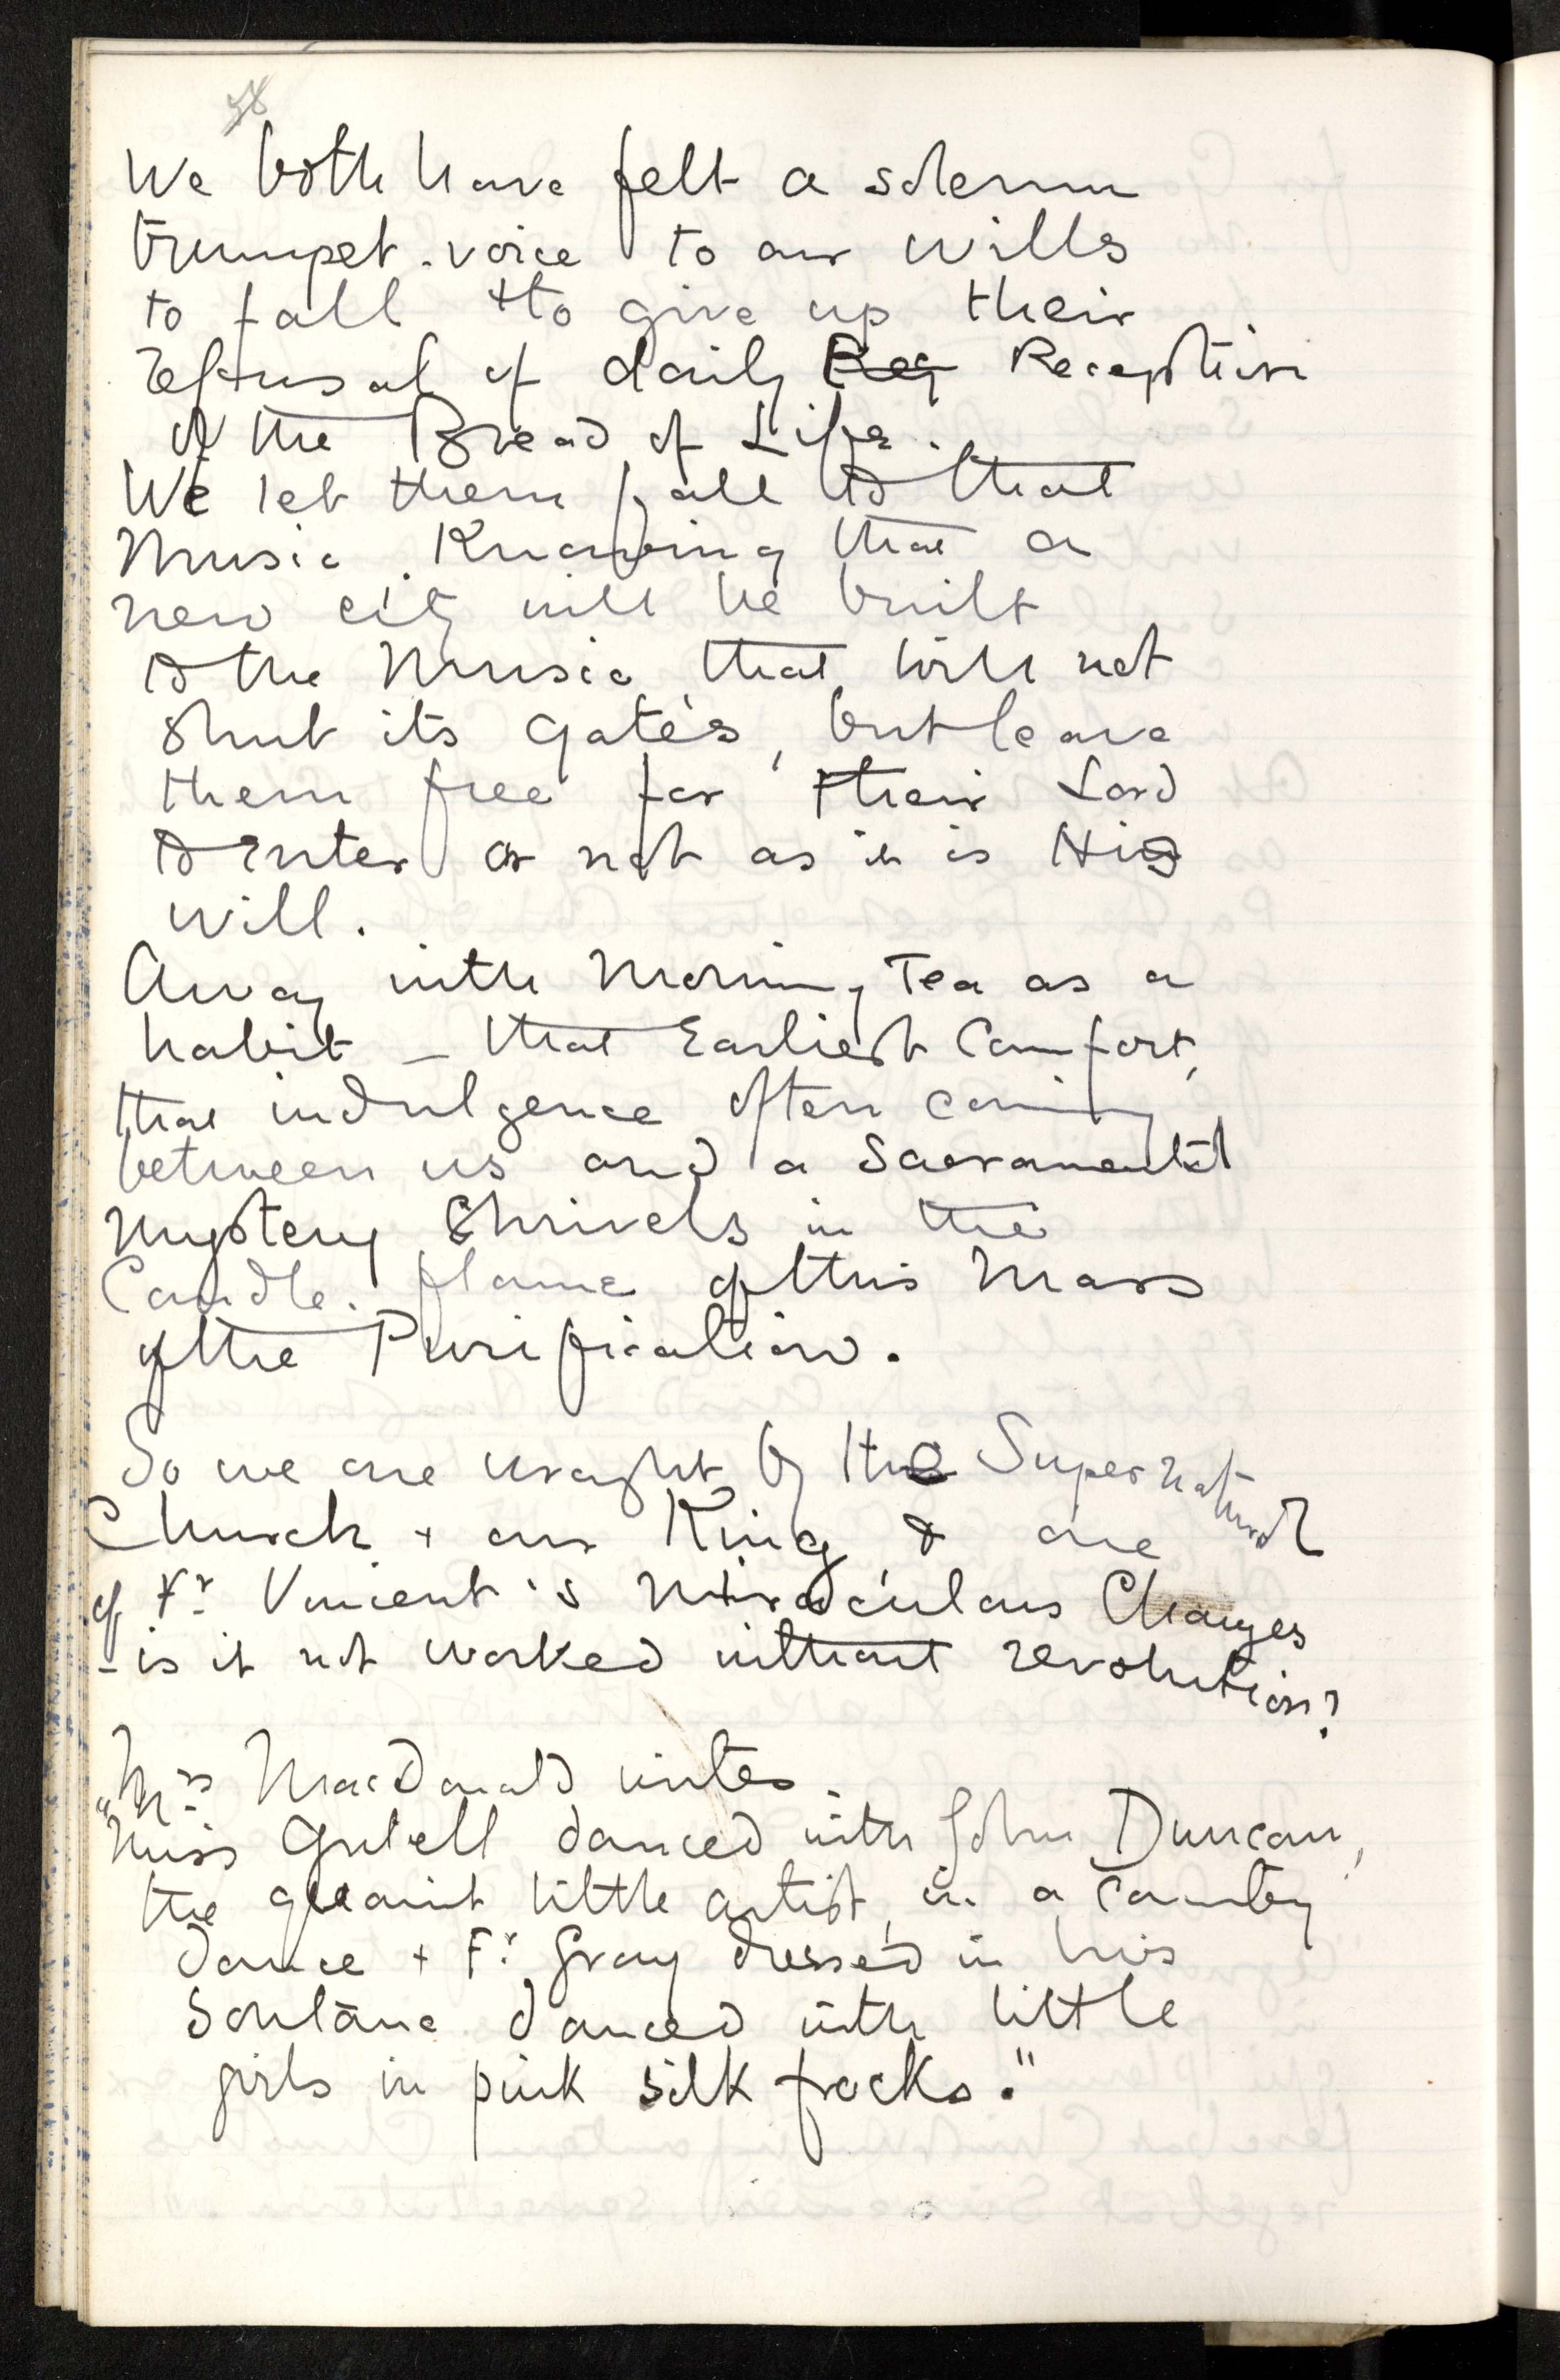 38
We both have felt a solemn
trumpet-voice to our wills
to fall + to give up their
refusal of daily Rec Reception
of the Bread of Life.
We let them fall to that
Music, Knowing that a
new city will be built
to the Music that will not
shut its gates, but leave
them free for their Lord
to enter or not as it is His
will.
Away with Morning Tea as a
habit – that Earliest Comfort,
that indulgence often coming
between us and a Sacramental
Mystery Shrivels in the
Candle-flame of this Mass
of the Purification.
So we are wrought by the Supernatural
Church + our King & one
of Fr. Vincent's Miraculous Changes
– is it not worked without revolution?
Mrs MacDonald writes.
"Miss Gribell danced with John Duncan,
the queaint little artist, in a country
dance + Fr. Gray dressed in his
Soutane danced with little
girls in pink silk frocks."